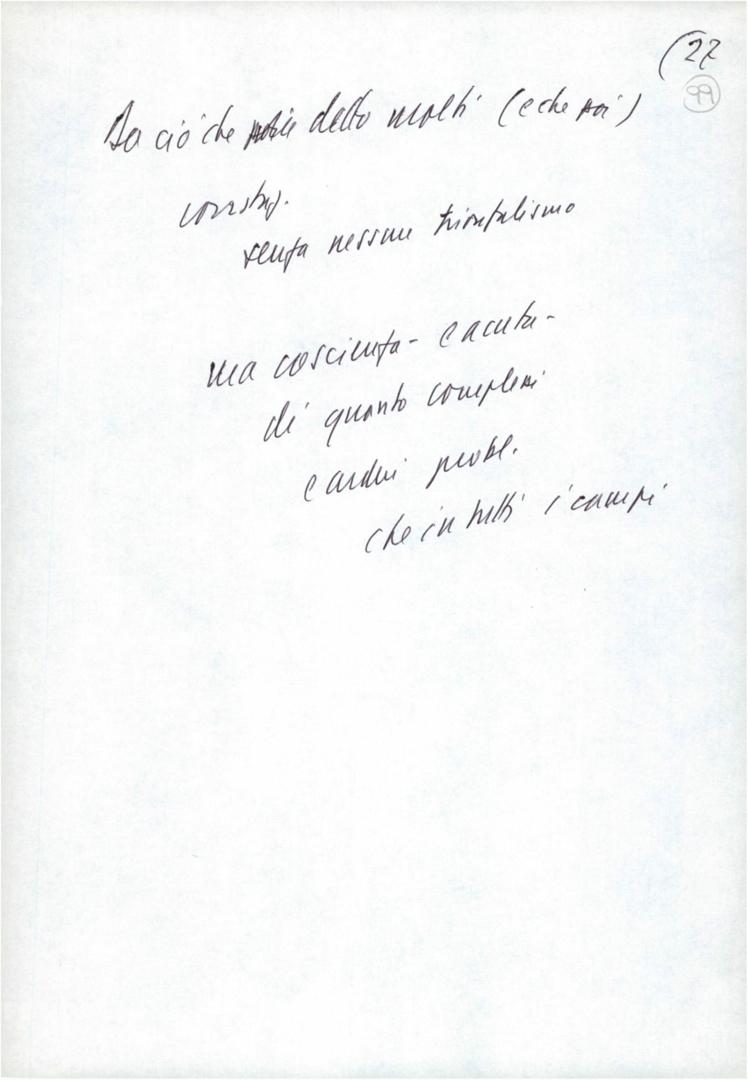 (27
99
Da ciò che detto molti (e che noi)
senza nessun trionfalismo
ma coscienza - e acuta -
di quanto complessi
e ardui probl.
che in tutti i campi